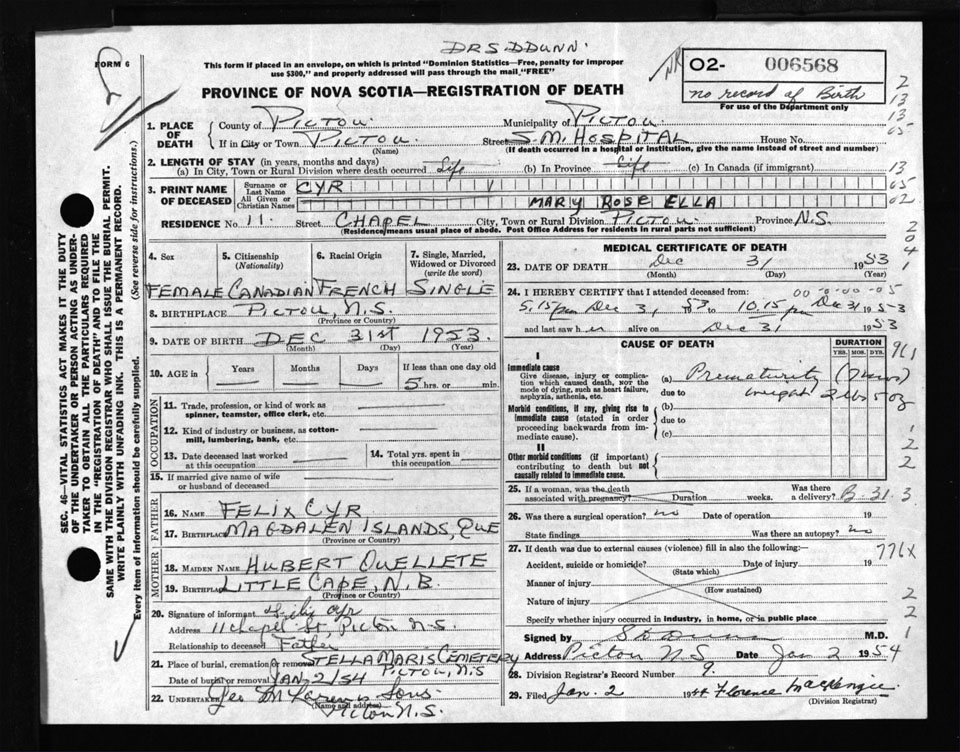 DR S D DUNN.
FORM 6
This form if placed in an envelope, on which is printed "Dominion Statistics—Free, penalty for improper
use $300," and properly addressed will pass through the mail "FREE"
O2- 006568
no record of Birth
For use of the Department only
PROVINCE OF NOVA SCOTIA—REGISTRATION OF DEATH
1. PLACE OF DEATH
County of PICTOU. Municipality of PICTOU.
If in City or Town PICTOU. Street S.M. HOSPITAL House No.
(Name) (If death occurred in a hospital or institution, give the name instead of street and number)
2. LENGTH OF STAY (in years, months and days)
(a) In City, Town or Rural Division where death occurred Life (b) In Province Life (c) In Canada (if immigrant)
3. PRINT NAME OF DECEASED
Surname or Last Name CYR
All Given or Christian Names MARY ROSE ELLA
RESIDENCE No 11. Street CHAPEL City, Town or Rural Division PICTOU. Province N.S.
(Residence means usual place of abode. Post Office Address for residents in rural parts not sufficient)
4. Sex 5. Citizenship (Nationality) 6. Racial Origin 7. Single, Married, Widowed or Divorced (write the word)
FEMALE CANADIAN FRENCH SINGLE
8. BIRTHPLACE PICTOU, N.S.
(Province or Country)
9. DATE OF BIRTH DEC 31st 1953
(Month) (Day) (Year)
10. AGE in Years Months Days If less than one day old
5 hrs. or min.
OCCUPATION
11. Trade, profession, or kind of work as
spinner, teamster, office clerk, etc.
12. Kind of industry or business, as cotton-
mill, lumbering, bank, etc.
13. Date deceased last worked
at this occupation
14. Total yrs. spent in
this occupation
15. If married give name of wife
or husband of deceased
FATHER
16. NAME FELIX CYR
17. BIRTHPLACE MAGDALEN ISLANDS, QUE
(Province or Country)
MOTHER
18. MAIDEN NAME HUBERT OUELLETE
19. BIRTHPLACE LITTLE CAPE, N.B.
(Province or Country)
20. Signature of informant Cyr
Address 11 Chapel St, Pictou N.S.
Relationship to deceased Father
21. Place of burial, cremation or removal STELLA MARIS CEMETERY
PICTOU, N.S
Date of burial or removal JAN 2/54
22. UNDERTAKER Geo McLaren & Sons
(Name and address)
Pictou N.S.
MEDICAL CERTIFICATE OF DEATH
23. DATE OF DEATH Dec 31 1953
(Month) (Day) (Year)
24. I HEREBY CERTIFY that I attended deceased from:
5.15 pm Dec 31, 1953 to 10.15 pm Dec 31 1953
and last saw her alive on Dec 31 1953
CAUSE OF DEATH
DURATION
YRS. MOS. DYS.
I
Immediate cause
Give disease, injury or complica-
tion which caused death, NOT the
mode of dying, such as heart failure,
asphyxia, asthenia, etc.
(a) Prematurity
due to weight 2 lbs 5 oz
Morbid conditions, if any, giving rise to
immediate cause (stated in order
proceeding backwards from im-
mediate cause).
(b)
due to
(c)
II
Other morbid conditions (if important)
contributing to death but not
causally related to immediate cause.
25. If a woman, was the death
associated with pregnancy? Duration weeks. Was there
a delivery?
26. Was there a surgical operation? no Date of operation 19
State findings Was there an autopsy? no
27. If death was due to external causes (violence) fill in also the following:—
Accident, suicide or homicide? Date of injury 19
(State which)
Manner of injury
(How sustained)
Nature of injury
Specify whether injury occurred in industry, in home, or in public place
Signed by S D Dunn M.D.
Address Pictou N S Date Jan 2 1954
28. Division Registrar's Record Number 9.
29. Filed Jan. 2 Florence MacKenzie
(Division Registrar)
SEC. 46—VITAL STATISTICS ACT MAKES IT THE DUTY
OF THE UNDERTAKER OR PERSON ACTING AS UNDER-
TAKER TO OBTAIN ALL THE PARTICULARS REQUIRED
IN THE "REGISTRATION OF DEATH" AND TO FILE THE
SAME WITH THE DIVISION REGISTRAR WHO SHALL ISSUE THE BURIAL PERMIT.
WRITE PLAINLY WITH UNFADING INK. THIS IS A PERMANENT RECORD.
Every item of information should be carefully supplied. (See reverse side for instructions.)
2
13
13
65
13
65
02
2
0
4
1
00-0-00-05
961
1
2
2
B-31-3
776X
2
2
1